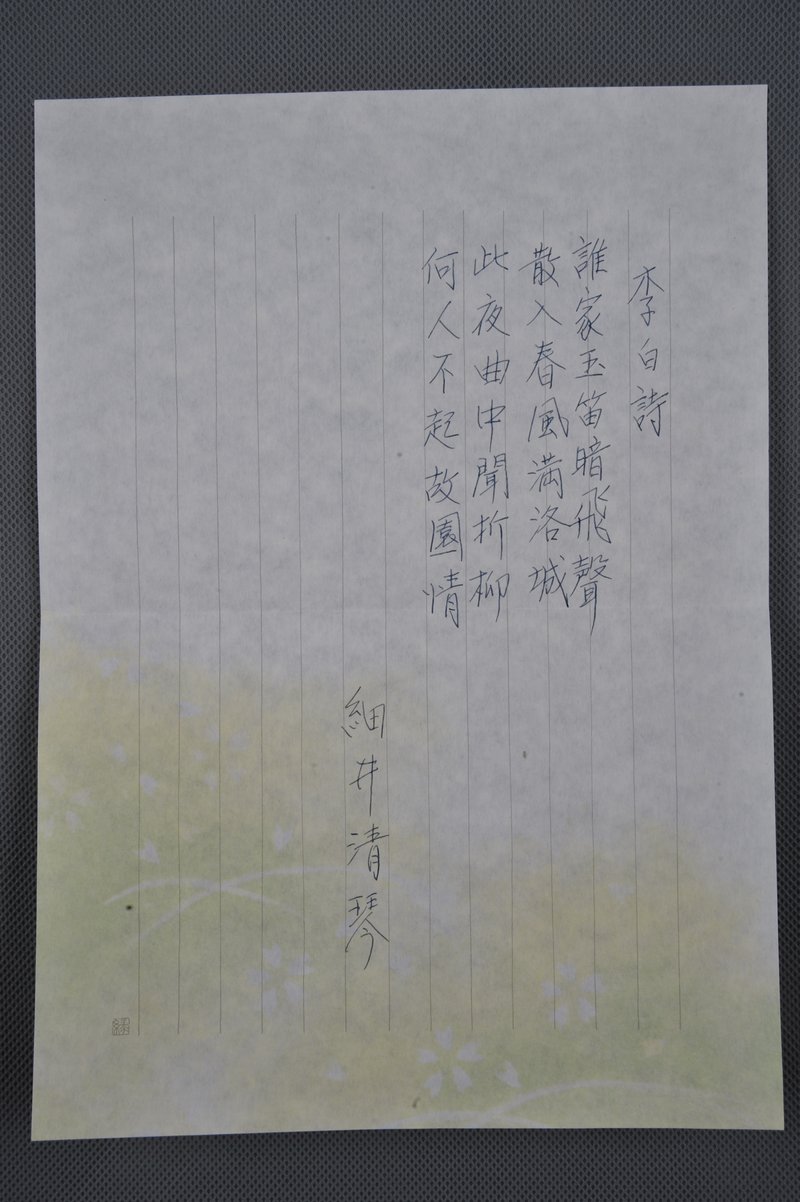 李白詩
誰家玉笛暗飛聲
散入春風満洛城
此夜曲中聞折柳
何人不起故園情
細井清琴